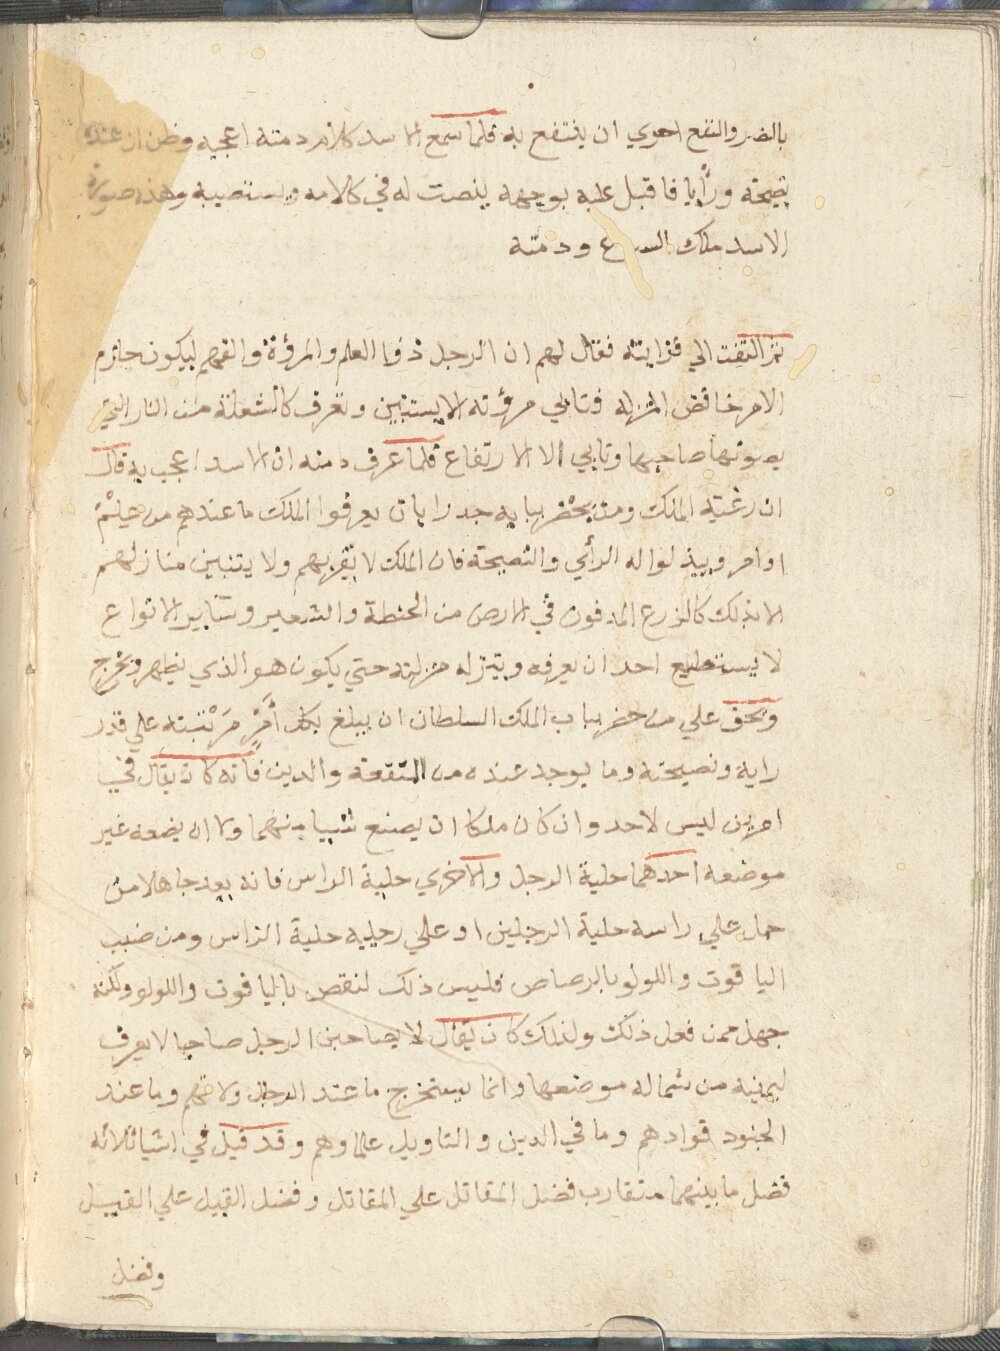 بالضر والنفع احري ان ينتفع به فلما سمع الاسد كلام دمنة اعجبه وظن ان عنده
نصيحة ورأيا فاقبل عليه بوجهه ينصت له في كلامه ويستصيبه وهذه صورة
الاسد ملك السباع ودمنة
ثم التفت الي قرابته فقال لهم ان الرجل ذوا العلم والمرؤة والفهم ليكون حازم
الامر خافض المنزلة فتابي مرؤته الا يستبين وتعرف كالشعلة من النار التي
يصونها صاحبها وتابي الا الارتفاع فلما عرف دمنه ان الاسد اعجب به قال
ان رعية الملك ومن يحضر ببابه جدرا بان يعرفوا الملك ما عندهم من علم
اوامر ويبذلوا له الرأي والنصيحة فان الملك لا يقربهم ولا يتبين منازلهم
الا بذلك كالزرع المدفون في الارض من الحنطة والشعير وسائر الانواع
لا يستطيع احد ان يعرفه وينزله منزلته حتي يكون هو الذي يظهر ويخرج
ويحق علي من حضر بباب الملك السلطان ان يبلغ بكل أمرٍ مَرْتبته علي قدر
رايه ونصيحته وما يوجد عنده من المنفعة والدين فانه كان يقال في
امرين ليس لاحد وان كان ملكا ان يصنع شيا منهما ولا ان يضعه غير
موضعه احدهما حلية الرجل والاخري حلية الراس فانه يعد جاهلا من
حمل علي راسه حلية الرجلين او علي رجليه حلية الراس ومن ضبب
الياقوت واللولو بالرصاص فليس ذلك لنقص باليا قوت واللولو ولكنه
جهل ممن فعل ذلك ولذلك كان يقال لا يصاحبن الرجل صاحبا لا يعرف
ليمينه من شماله موضعها وانما يستخرج ما عند الرجال ولاتهم وما عند
الجنود قوادهم وما في الدين والتاويل علماوهم وقد قيل في اشيا ثلاثه
فضل ما بينهما متقارب فضل المقاتل علي المقاتل وفضل الفيل علي الفيل
وفضل